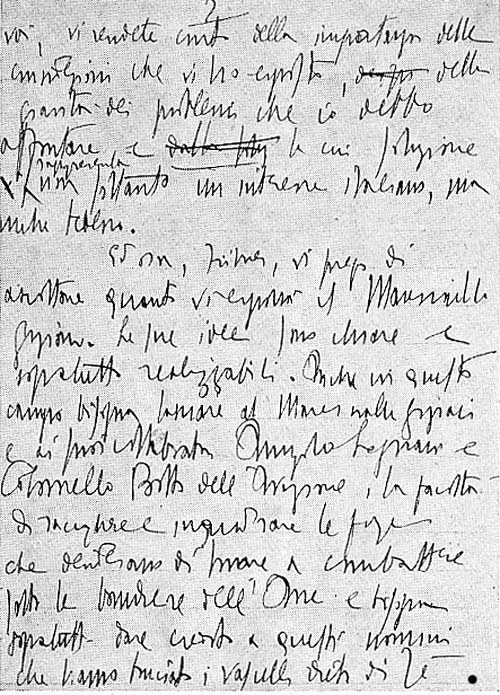 2
voi, vi rendete conto della importanza delle
condizioni che vi ho esposto, della
gravità dei problemi che io debbo
affrontare e la cui soluzione
rappresenta
non soltanto un interesse italiano, ma
anche tedesco.
Ed ora, Führer, vi prego di
ascoltare quanto vi esporrà il Maresciallo
Graziani. Le sue idee sono chiare e
sopratutto realizzabili. Anche in questo
campo bisogna lasciare al Maresciallo Graziani
e ai suoi collaboratori Ammiraglio Legnani e
Colonnello Botto dell'Aviazione, la facoltà
di raccogliere e inquadrare le forze
che desiderano di tornare a combattere
sotto le bandiere dell'Onore e bisogna
sopratutto dare credito a questi uomini
che hanno bruciato i vascelli dietro di sé